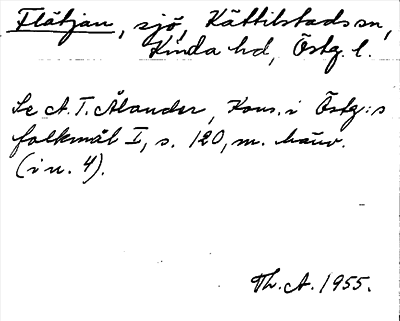 Flätjan, sjö, Kättilstads sn,
Kinda hd, Östg. l.
Se A. T. Ålander, Kons. i Östg:s
folkmål I, s. 120, m. hänv.
(i n. 4).
Th. A. 1955.